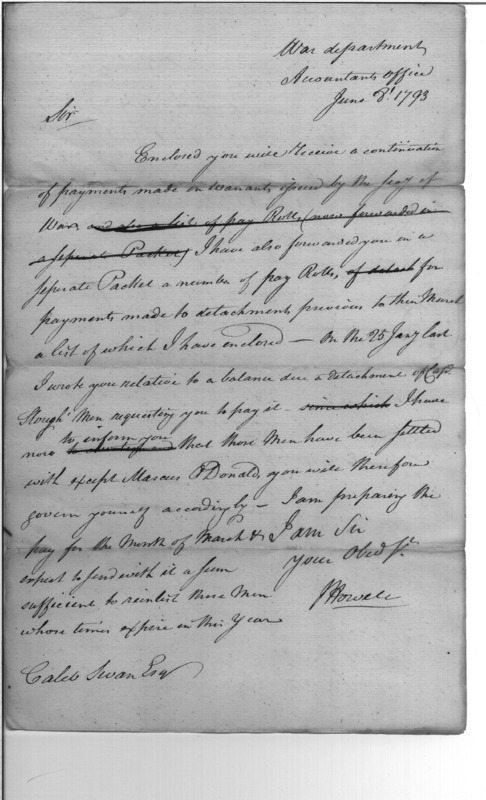 War department
Accountants office
June 8th 1793
Sir
Enclosed you will receive a continuation
of payments made on warrants issued by the Secy of
War, and also a list of pay Rolls, (now forwarded in
a seperate Packet) I have also forwarded you in a
seperate Packet a number of pay Rolls, of detach for
payments made to detachments previous to their March
a list of which I have enclosed — On the 25 Jany last
I wrote you relative to a balance due a detachment of Capt
Slough's Men requesting you to pay it — since which I have
now to inform you that those Men have been settled
with except Marcus O Donald, you will therefore
govern yourself accordingly — I am preparing the
pay for the Month of March &
expect to send with it a sum
sufficient to reinlist those Men
whose times expire in this Year
I am Sir
your Obed St.
J Howell
Caleb Swan Esqr